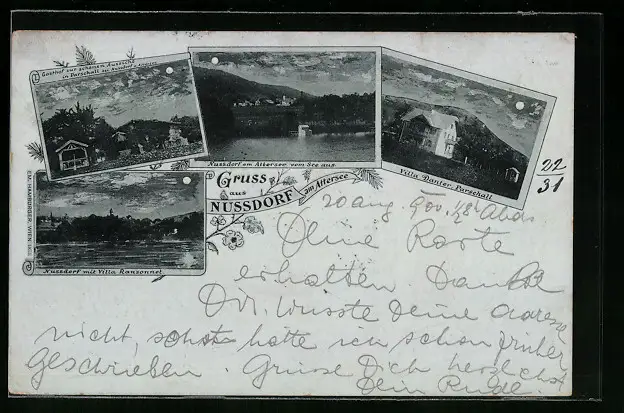 Gasthof zur schönen Aussicht
in Parschall bei Nussdorf a. Attersee
Nussdorf am Attersee vom See aus
Villa Danter, Parschall
Nussdorf mit Villa Ransonnet
EM. HAMBURGER, WIEN
Gruss
aus
NUSSDORF
am Attersee
22
31
20 Aug. 900. 1/2 8h Abds
Deine Karte
erhalten Danke
Dir. Wusste deine Adresse
nicht, sonst hätte ich schon früher
geschrieben. Grüsse Dich herzlichst
Dein